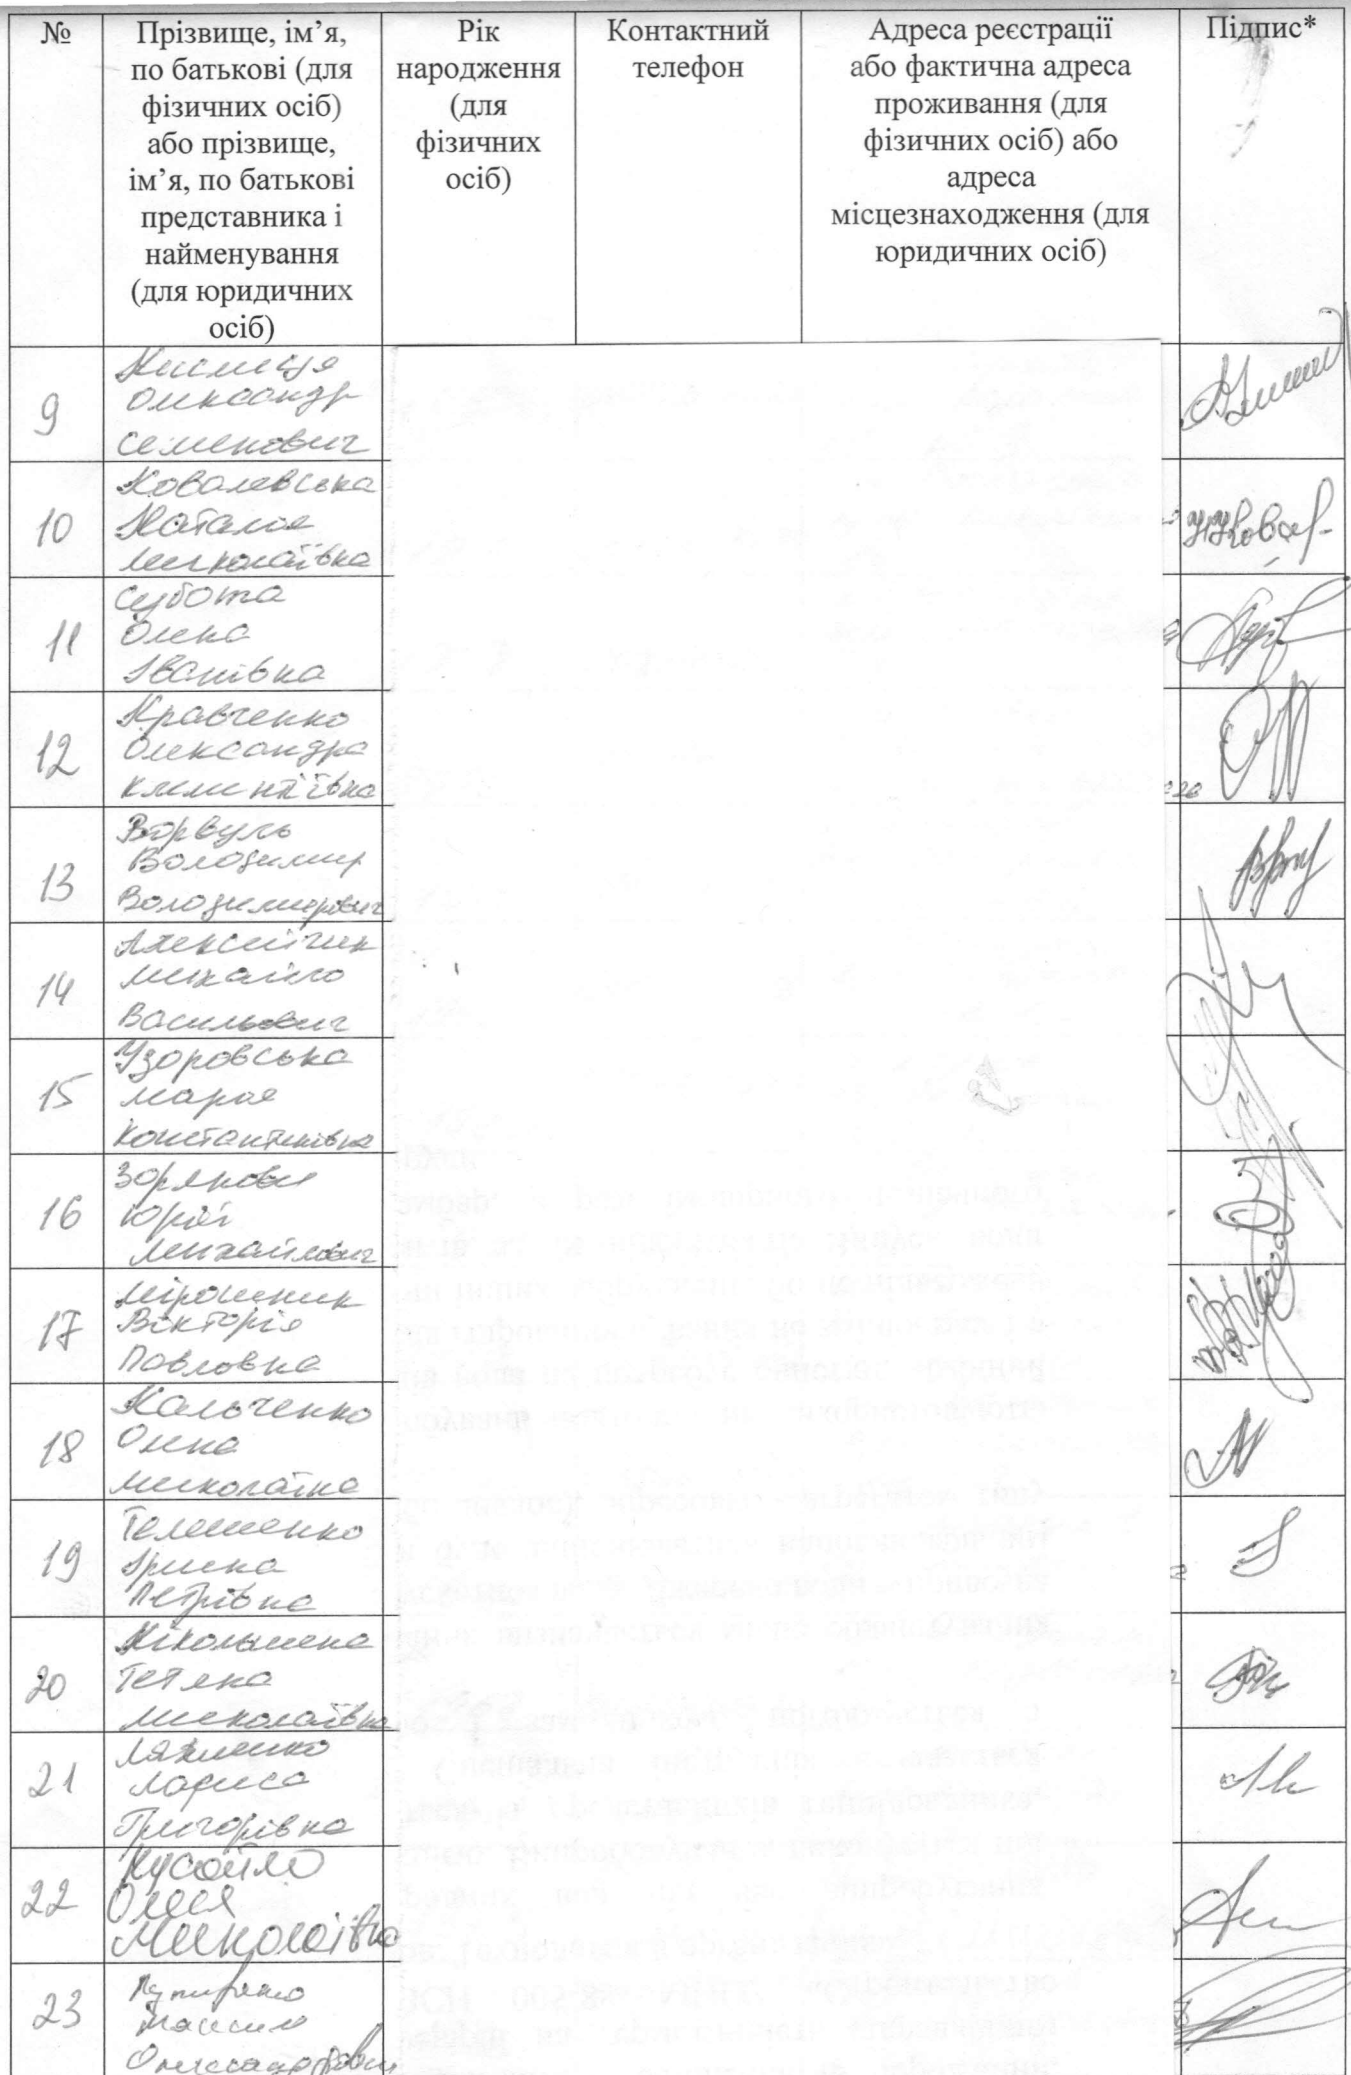 №
Прізвище, ім’я,
по батькові (для
фізичних осіб)
або прізвище,
ім’я, по батькові
представника і
найменування
(для юридичних
осіб)
Рік
народження
(для
фізичних
осіб)
Контактний
телефон
Адреса реєстрації
або фактична адреса
проживання (для
фізичних осіб) або
адреса
місцезнаходження (для
юридичних осіб)
Підпис*
9
Кислиця
Олександр
Семенович
10
Ковалевська
Наталія
Миколаївна
11
Субота
Олена
Іванівна
12
Кравченко
Олександра
Климентіївна
13
Володимир
Володимирович
14
Алексейчик
Михайло
Васильович
15
Узоровська
Марія
Константинівна
16
Юрій
Михайлович
17
Мірошник
Вікторія
Павловна
18
Кальченко
19
Ірина
Петрівна
20
Тетяна
Миколаївна
21
Лариса
Григорівна
22
Олеся
Миколаївна
23
Олександрович